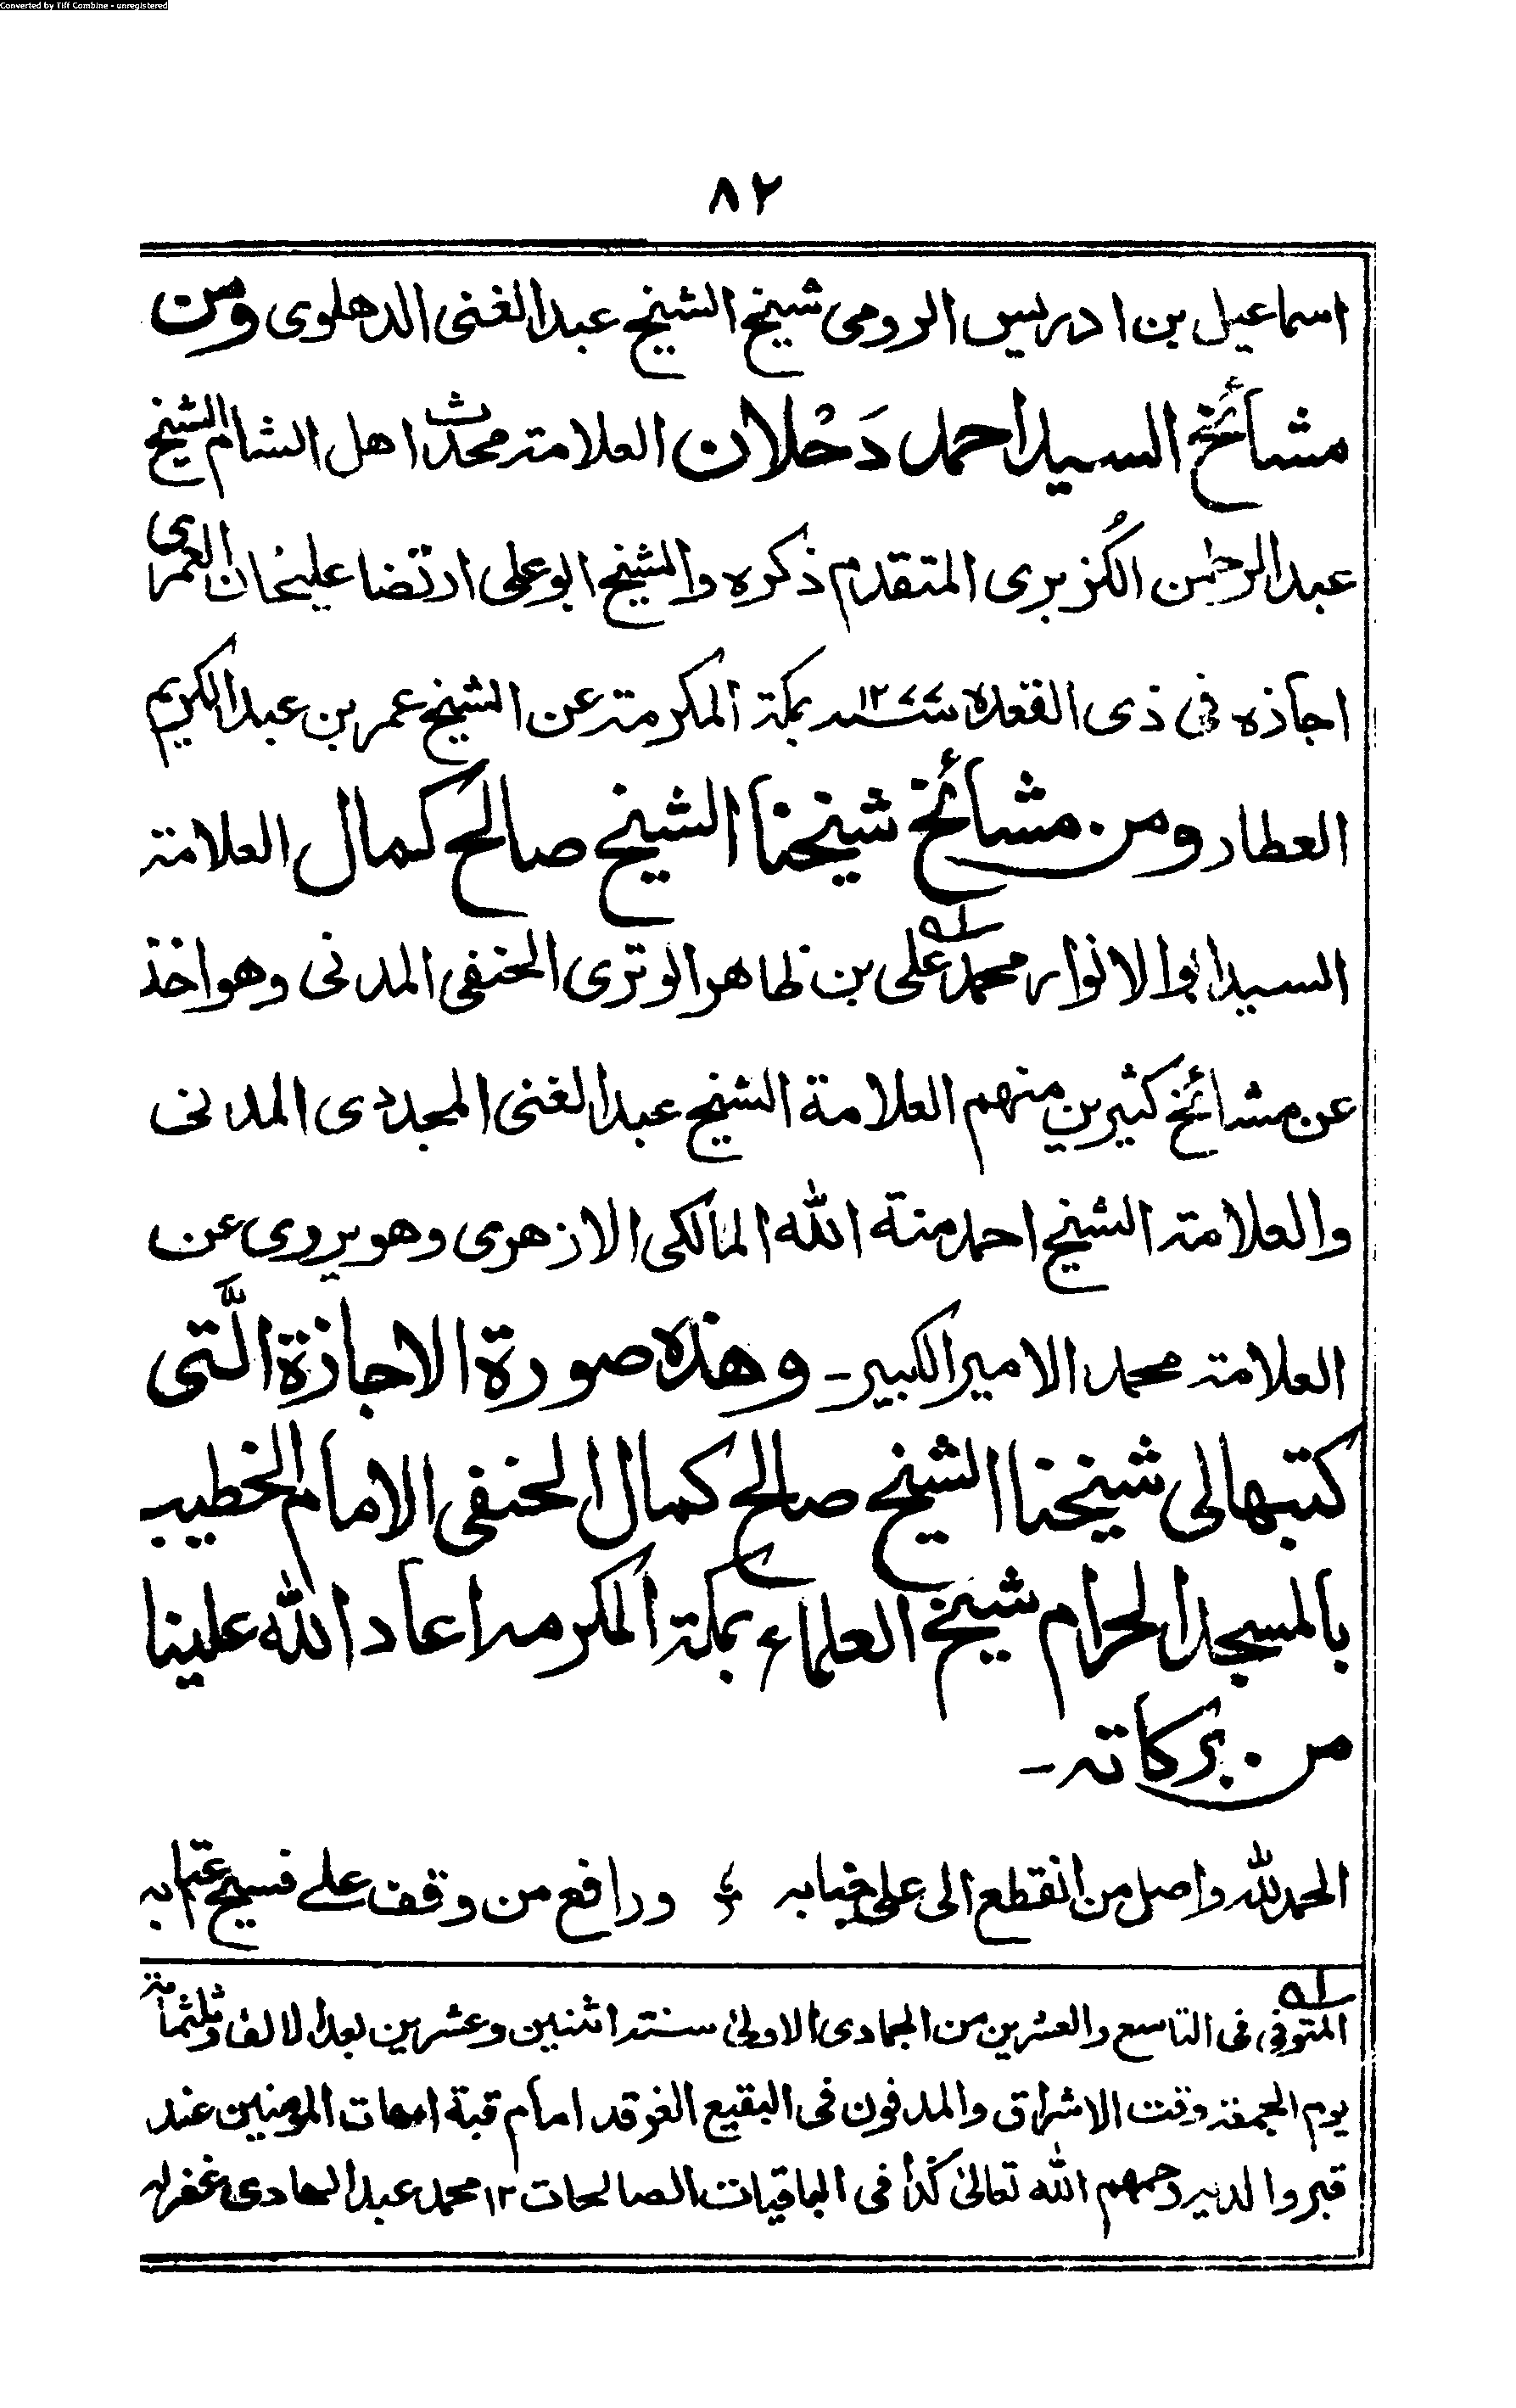 Converted by Tiff Combine - unregistered
٨٢
اسماعیل بن ادریس الرومی شیخ الشیخ عبدالغنی الدهلوی ومن
مشائخ السید احمد دَحْلان العلامة محدث اهل الشام الشیخ
عبدالرحمٰن الکُزبری المتقدم ذکره والشیخ ابو علی ارتضا علیخان العمری
اجازه فی ذی القعده سنة ١٢٧٧ بمکة المکرمة عن الشیخ عمر بن عبدالکریم
العطار ومن مشائخ شیخنا الشیخ صالح کمال العلامة
السید ابوالانوار محمد علی بن ظاهر الوتری الحنفی المدنی وهو اخذ
عن مشائخ کثیرین منهم العلامة الشیخ عبدالغنی المجددی المدنی
والعلامة الشیخ احمد منة الله المالکی الازهری وهو یروی عن
العلامة محمد الامیر الکبیر۔ وهذه صورة الاجازة الَّتی
کتبها لی شیخنا الشیخ صالح کمال الحنفی الامام الخطیب
بالمسجد الحرام شیخ العلماء بمکة المکرمه اعاد الله علینا
من برکاته۔
الحمد لله واصل من انقطع الی علی جنابه ؛ ورافع من وقف علے فسیح عتابه
له المتوفی فی التاسع والعشرین من الجمادی الاولیٰ سنة اثنین وعشرین بعد الالف وثلثمائة
یوم الجمعة وقت الاشراق والمدفون فی البقیع الغرقد امام قبة امهات المومنین عند
قبر والدیه رحمهم الله تعالیٰ کذا فی الباقیات الصالحات ١٢ محمد عبدالهادی غفرله